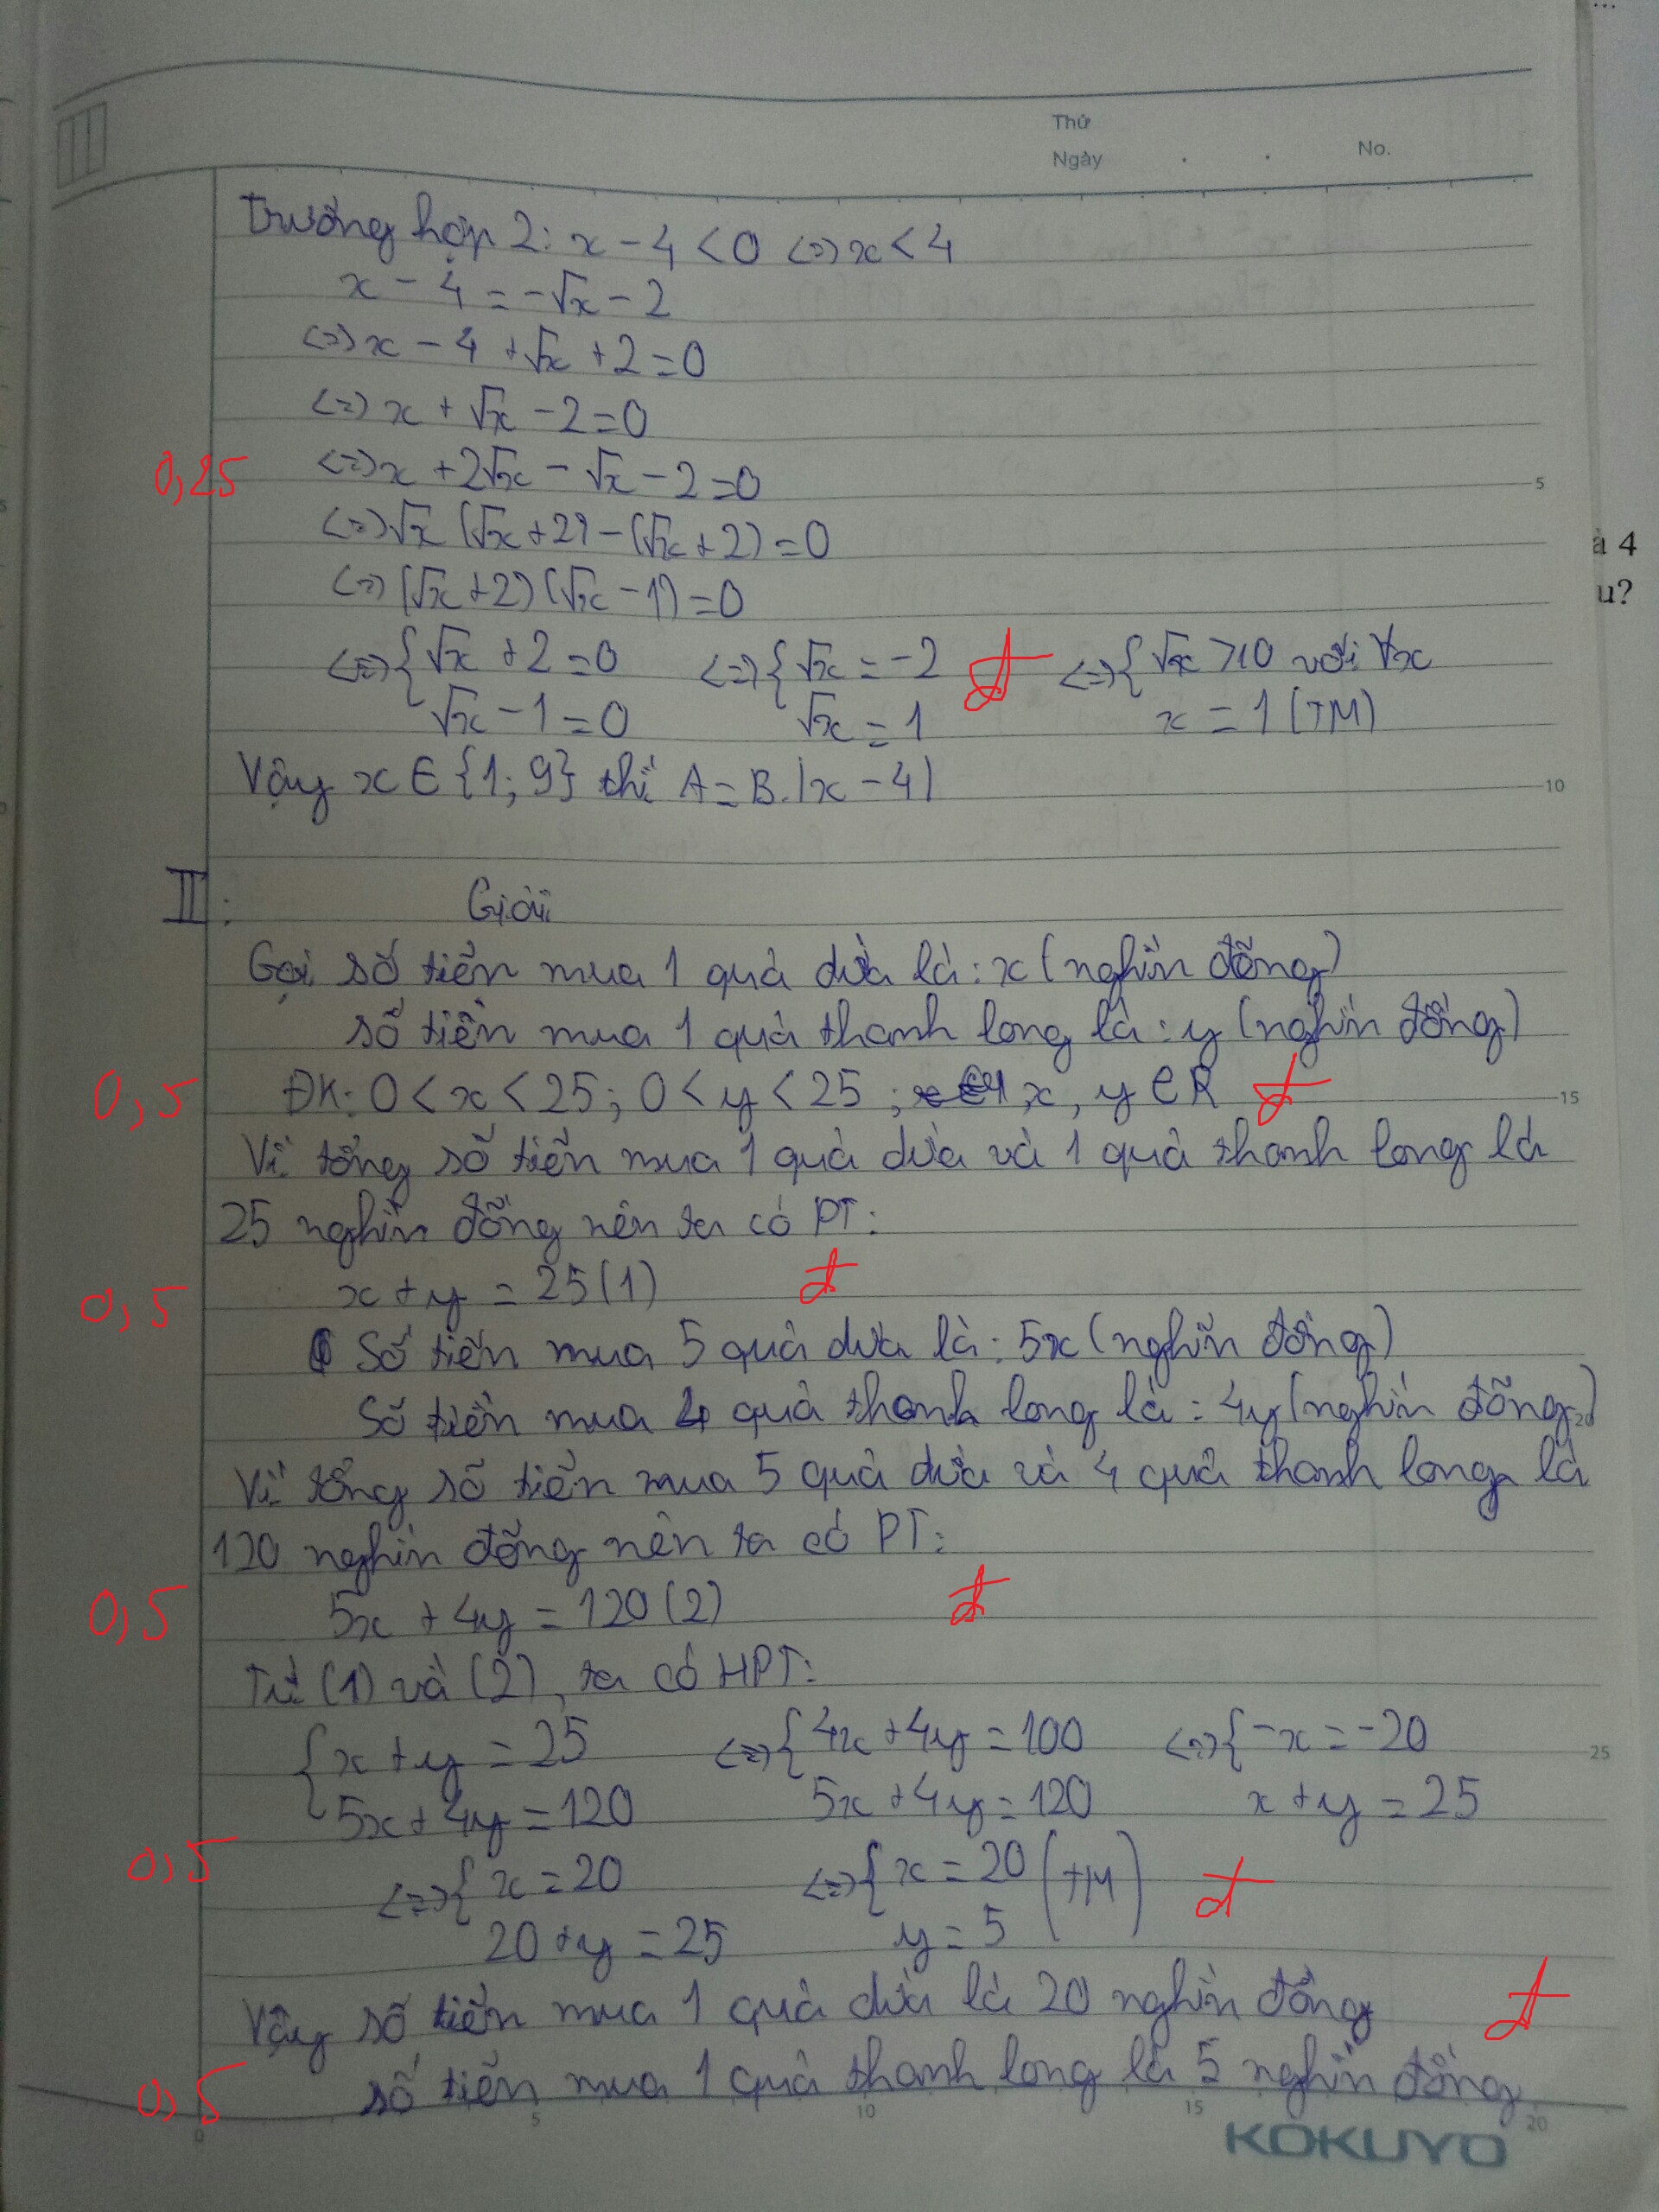 Thứ
Ngày . . No.
Trường hợp 2: x - 4 < 0 <=> x < 4
x - 4 = -√x - 2
<=> x - 4 + √x + 2 = 0
<=> x + √x - 2 = 0
0,25 <=> x + 2√x - √x - 2 = 0
5
<=> √x (√x + 2) - (√x + 2) = 0
à 4
<=> (√x + 2) (√x - 1) = 0
u?
<=> { √x + 2 = 0 <=> { √x = -2 đ <=> { √x ≥ 0 với ∀x
√x - 1 = 0 √x = 1 x = 1 (TM)
Vậy x ∈ {1; 9} thì A = B.|x - 4|
10
II: Giải
Gọi số tiền mua 1 quả dừa là: x (nghìn đồng)
số tiền mua 1 quả thanh long là: y (nghìn đồng)
0,5 ĐK: 0 < x < 25; 0 < y < 25 ; x, y ∈ R đ
15
Vì tổng số tiền mua 1 quả dừa và 1 quả thanh long là
25 nghìn đồng nên ta có PT:
0,5 x + y = 25 (1) đ
Số tiền mua 5 quả dừa là: 5x (nghìn đồng)
Số tiền mua 4 quả thanh long là: 4y (nghìn đồng)
20
Vì tổng số tiền mua 5 quả dừa và 4 quả thanh long là
120 nghìn đồng nên ta có PT:
0,5 5x + 4y = 120 (2) đ
Từ (1) và (2), ta có HPT:
{ x + y = 25 <=> { 4x + 4y = 100 <=> { -x = -20
25
5x + 4y = 120 5x + 4y = 120 x + y = 25
0,5 <=> { x = 20 <=> { x = 20 (TM) đ
20 + y = 25 y = 5
Vậy số tiền mua 1 quả dừa là 20 nghìn đồng đ
0,5 số tiền mua 1 quả thanh long là 5 nghìn đồng
0 5 10 15 20
KOKUYO